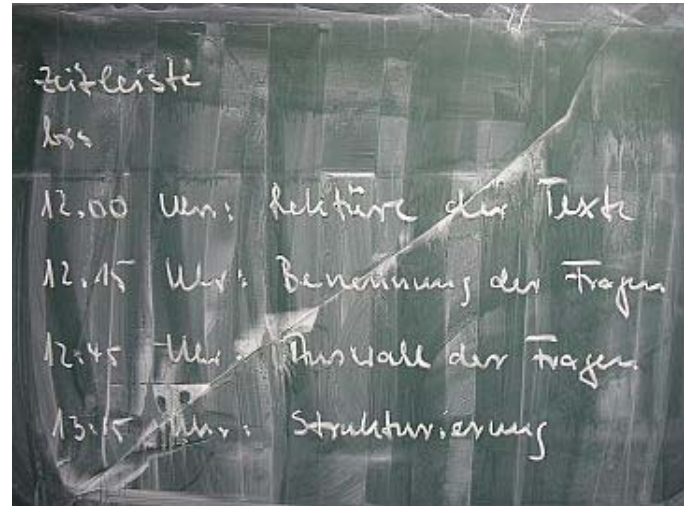 Zeitleiste
bis
12.00 Uhr: Lektüre der Texte
12.15 Uhr: Benennung der Fragen
12:45 Uhr: Auswahl der Fragen
13:15 Uhr: Strukturierung